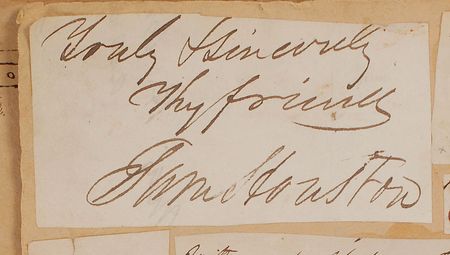 Truly & Sincerely
Thy friend
Sam Houston